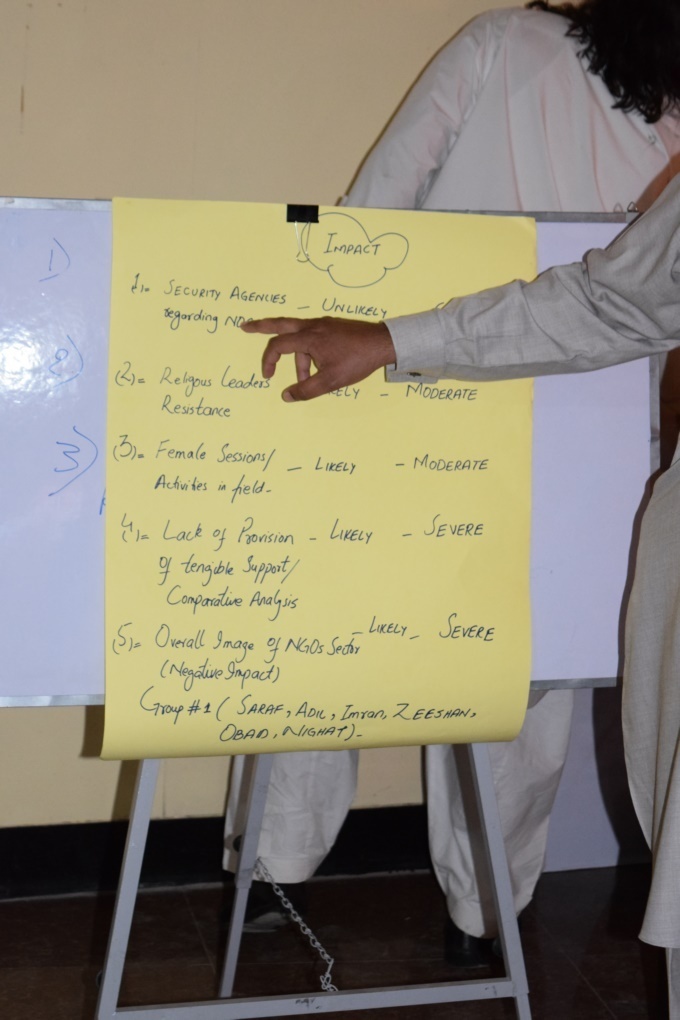 IMPACT
1)= SECURITY AGENCIES - UNLIKELY
regarding
(2)= Religous Leaders - MODERATE
Resistance
(3)= Female Sessions/ - LIKELY - MODERATE
Activities in field-
4)= Lack of Provision - LIKELY - SEVERE
of tengible Support/
Comparative Analysis
(5)= Overall Image of NGOs Sector - LIKELY - SEVERE
(Negative Impact)
Group #1 ( SARAF, ADIL, Imran, ZEESHAN,
OBAID, NIGHAT)-
1)
2)
3)